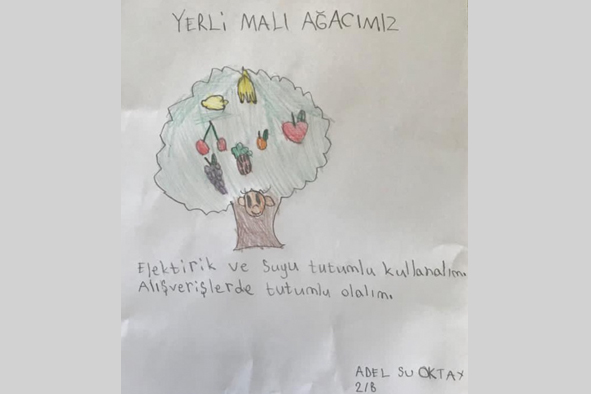 YERLİ MALI AĞACIMIZ
Elektirik ve Suyu tutumlu kullanalım.
Alışverişlerde tutumlu olalım.
ADEL SU OKTAY
2/B